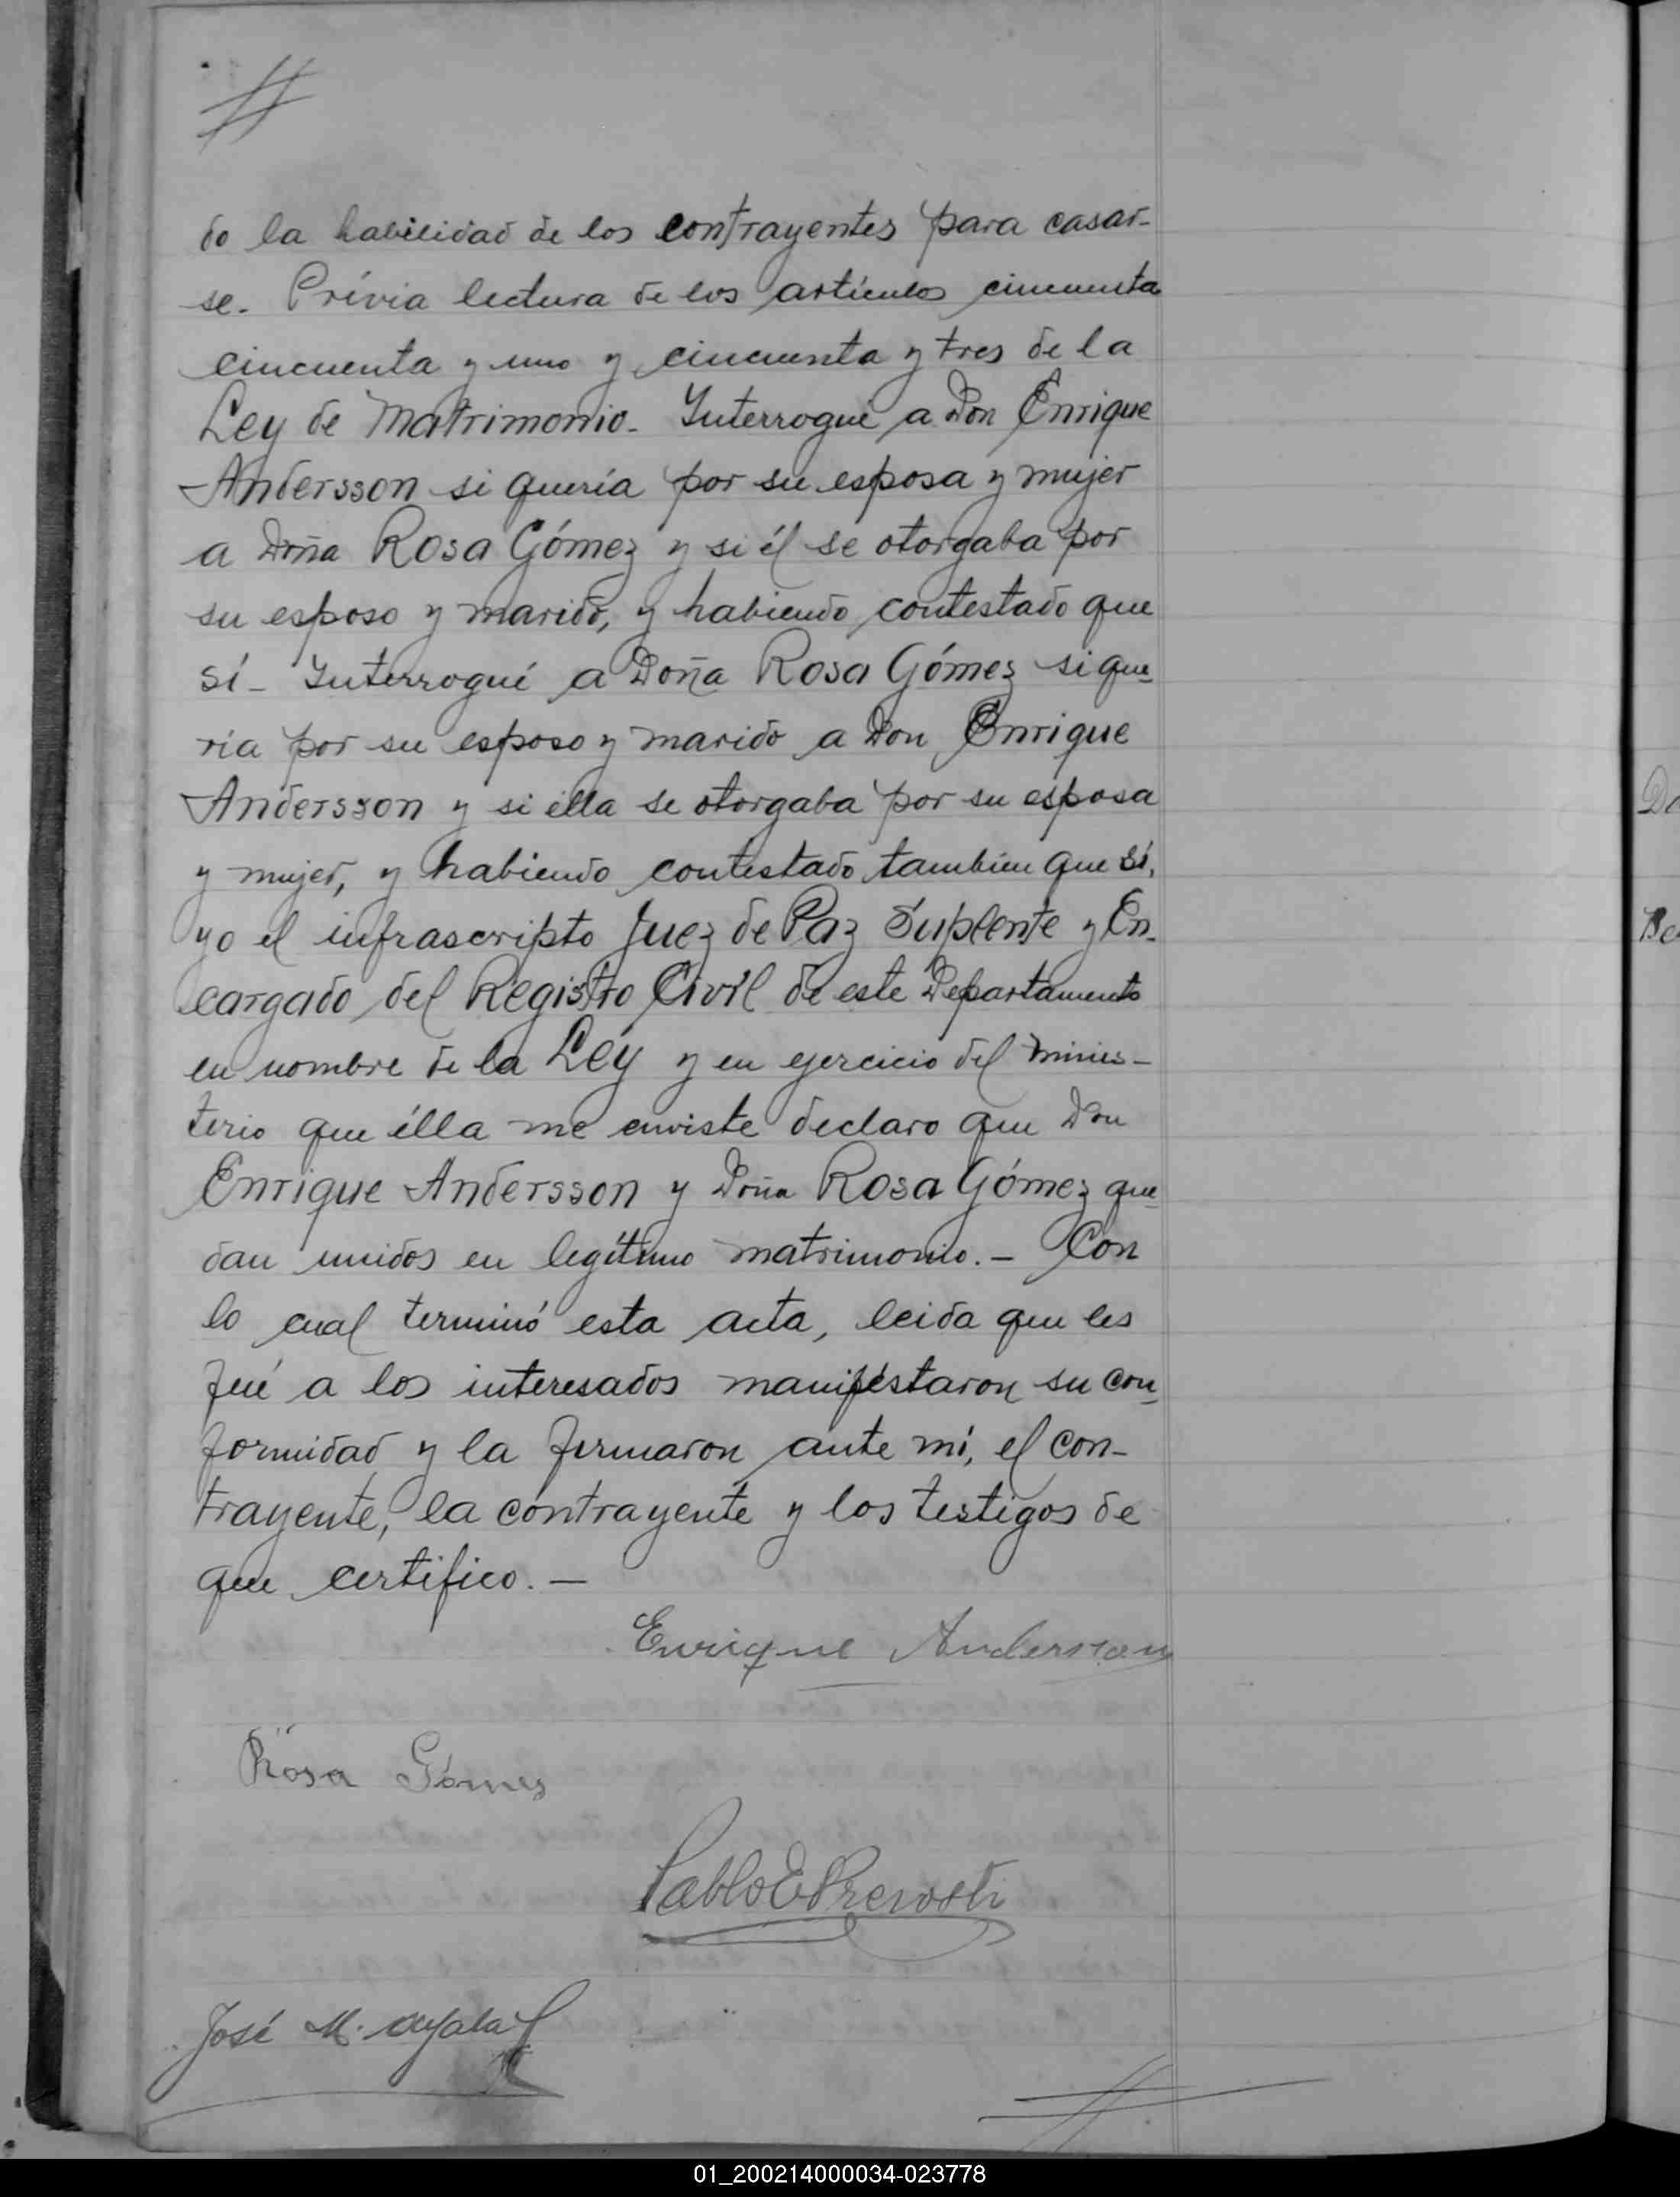 do la habilidad de los contrayentes para casar-
se. Prévia lectura de los artículos cincuenta
cincuenta y uno y cincuenta y tres de la
Ley de Matrimonio. Interrogué a Don Enrique
Andersson si quería por su esposa y mujer
a Doña Rosa Gómez y si él se otorgaba por
su esposo y marido, y habiendo contestado que
sí - Interrogué a Doña Rosa Gómez si que-
ría por su esposo y marido a Don Enrique
Andersson y si élla se otorgaba por su esposa
y mujer, y habiendo contestado tambien que sí,
yo el infrascripto Juez de Paz Suplente y En-
cargado del Registro Civil de este Departamento
en nombre de la Ley y en ejercicio del minis-
terio que élla me enviste declaro que Don
Enrique Andersson y Doña Rosa Gómez que-
dan unidos en legítimo matrimonio. - Con
lo cual terminó esta acta, leida que les
fué a los interesados manifestaron su con-
formidad y la firmaron ante mí, el con-
trayente, la contrayente y los testigos de
que certifico. -
Enrique Andersson
Rosa Gómez
Pablo E Prevosti
José M. Ayala
De
Be
01_200214000034-023778